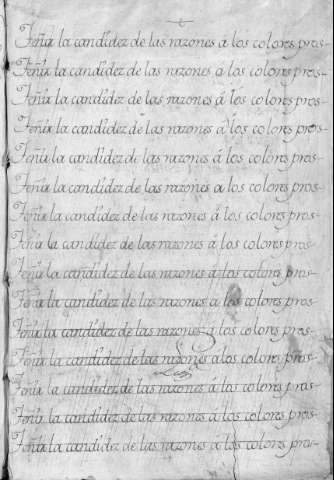 Teñia la candidez de las razones á los colores pros-
Teñia la candidez de las razones a los colores pros-
Teñia la candidez de las razones á los colores pros-
Teñia la candidez de las razones á los colores pros-
Teñia la candidez de las razones á los colores pros-
Teñia la candidez de las razones a los colores pros-
Teñia la candidez de las razones á los colores pros-
Teñia la candidez de las razones á los colores pros-
Teñia la candidez de las razones a los colores pros-
Teñia la candidez de las razones a los colores pros-
Teñia la candidez de las razones á los colores pros-
Teñia la candidez de las razones a los colores pros-
Teñia la candidez de las razones á los colores pros-
Teñia la candidez de las razones á los colores pros-
Teñia la candidez de las razones á los colores pros-